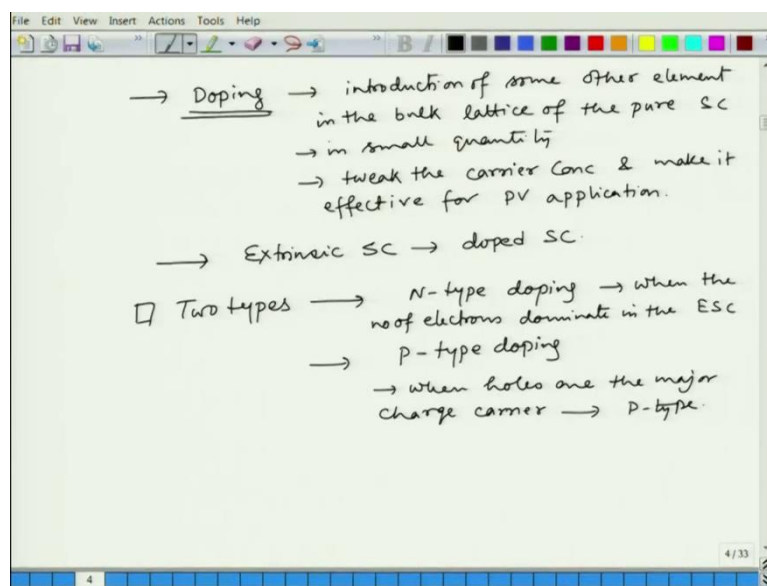 File Edit View Insert Actions Tools Help
→ Doping → introduction of some other element
in the bulk lattice of the pure SC
→ in small quantity
→ tweak the carrier conc & make it
effective for PV application.
→ Extrinsic SC → doped SC.
□ Two types → N-type doping → when the
no of electrons dominate in the ESC
→ P-type doping
→ when holes are the major
charge carrier → P-type.
4/33
4